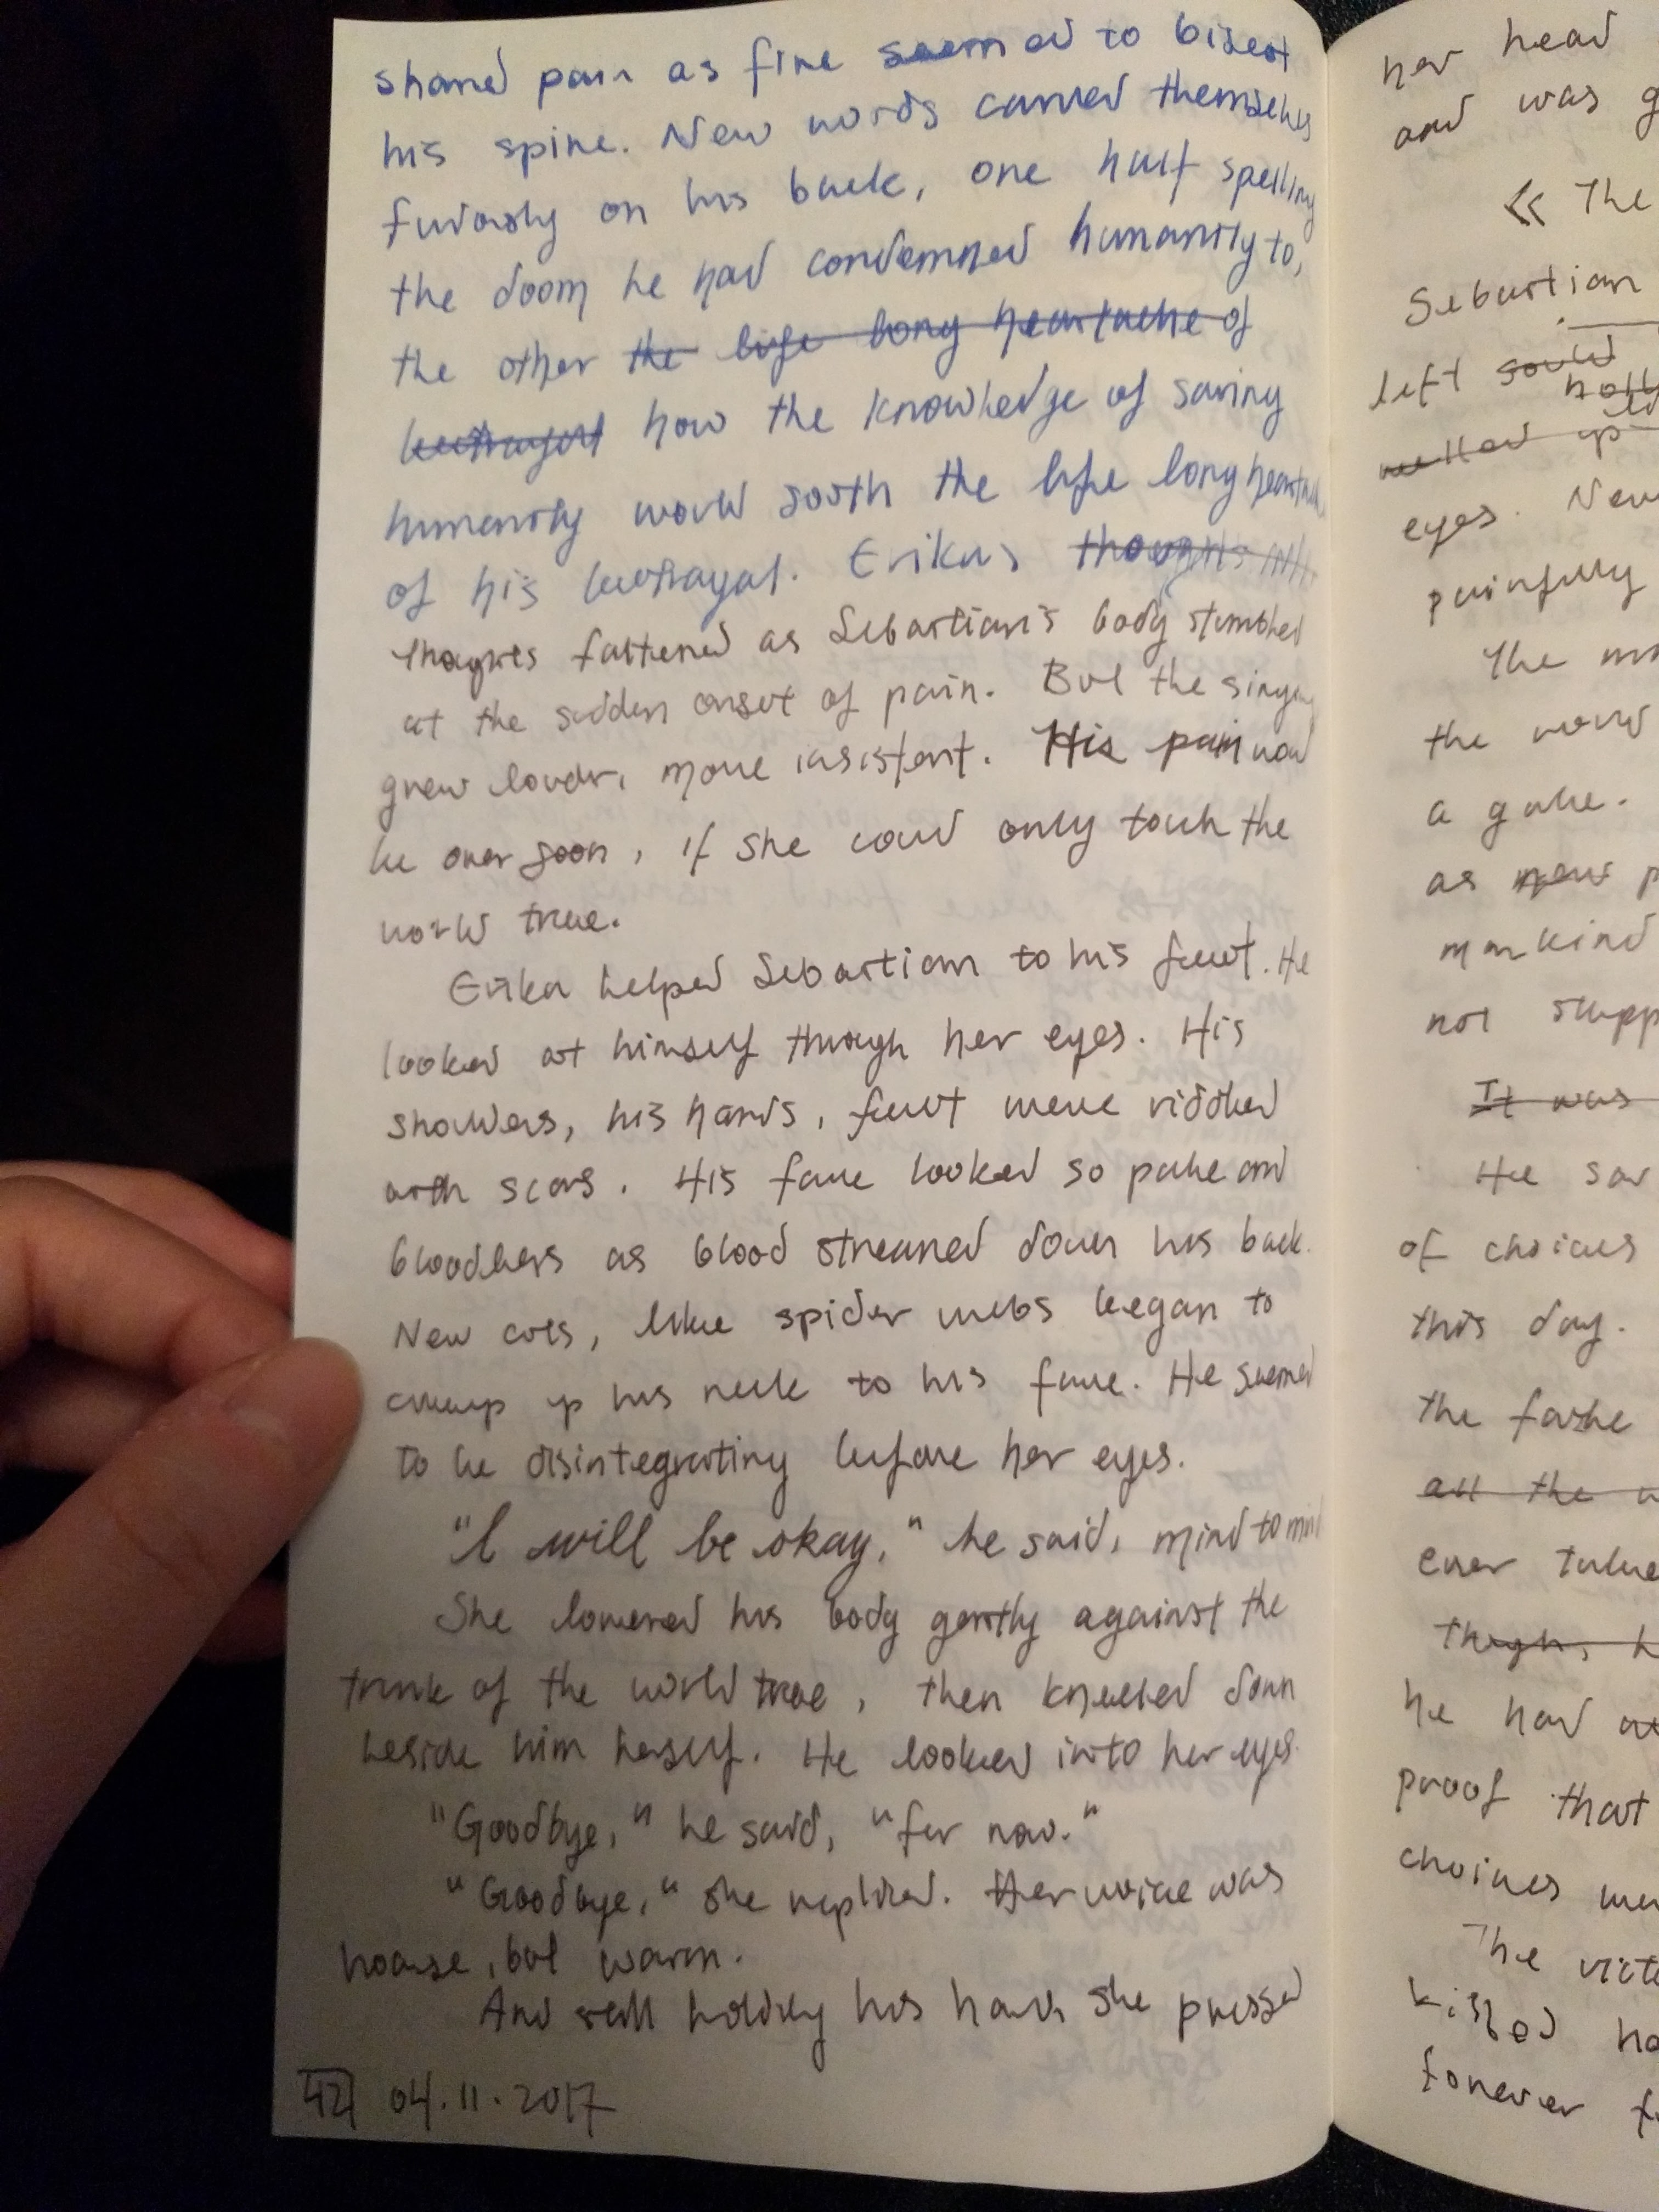 shared pain as fire seemed to bisect
his spine. New words carved themselves
furiously on his back, one half spelling
the doom he had condemned humanity to,
the other the life long heartache of
betrayal how the knowledge of saving
humanity would sooth the life long heartache
of his betrayal. Erika's thoughts
thoughts faltered as Sebastian's body stumbled
at the sudden onset of pain. But the singing
grew louder, more insistent. His pain would
be over soon, if she could only touch the
world tree.
Erika helped Sebastian to his feet. He
looked at himself through her eyes. His
shoulders, his hands, feet were riddled
with scars. His face looked so pale and
bloodless as blood streamed down his back.
New cuts, like spider webs began to
creep up his neck to his face. He seemed
to be disintegrating before her eyes.
"I will be okay," he said, mind to mind
She lowered his body gently against the
trunk of the world tree, then kneeled down
beside him herself. He looked into her eyes.
"Goodbye," he said, "for now."
"Goodbye," she replied. Her voice was
hoarse, but warm.
And still holding his hand, she pressed
42 04.11.2017
her head
and was g
« The
Sebastian
left could
up
eyes. New
painfully
The
the world
a gale.
as new p
mankind
not supp
It was
He sa
of choices
this day.
the
all the w
ever
though, h
he had
proof that
choices we
The vict
kissed he
forever f